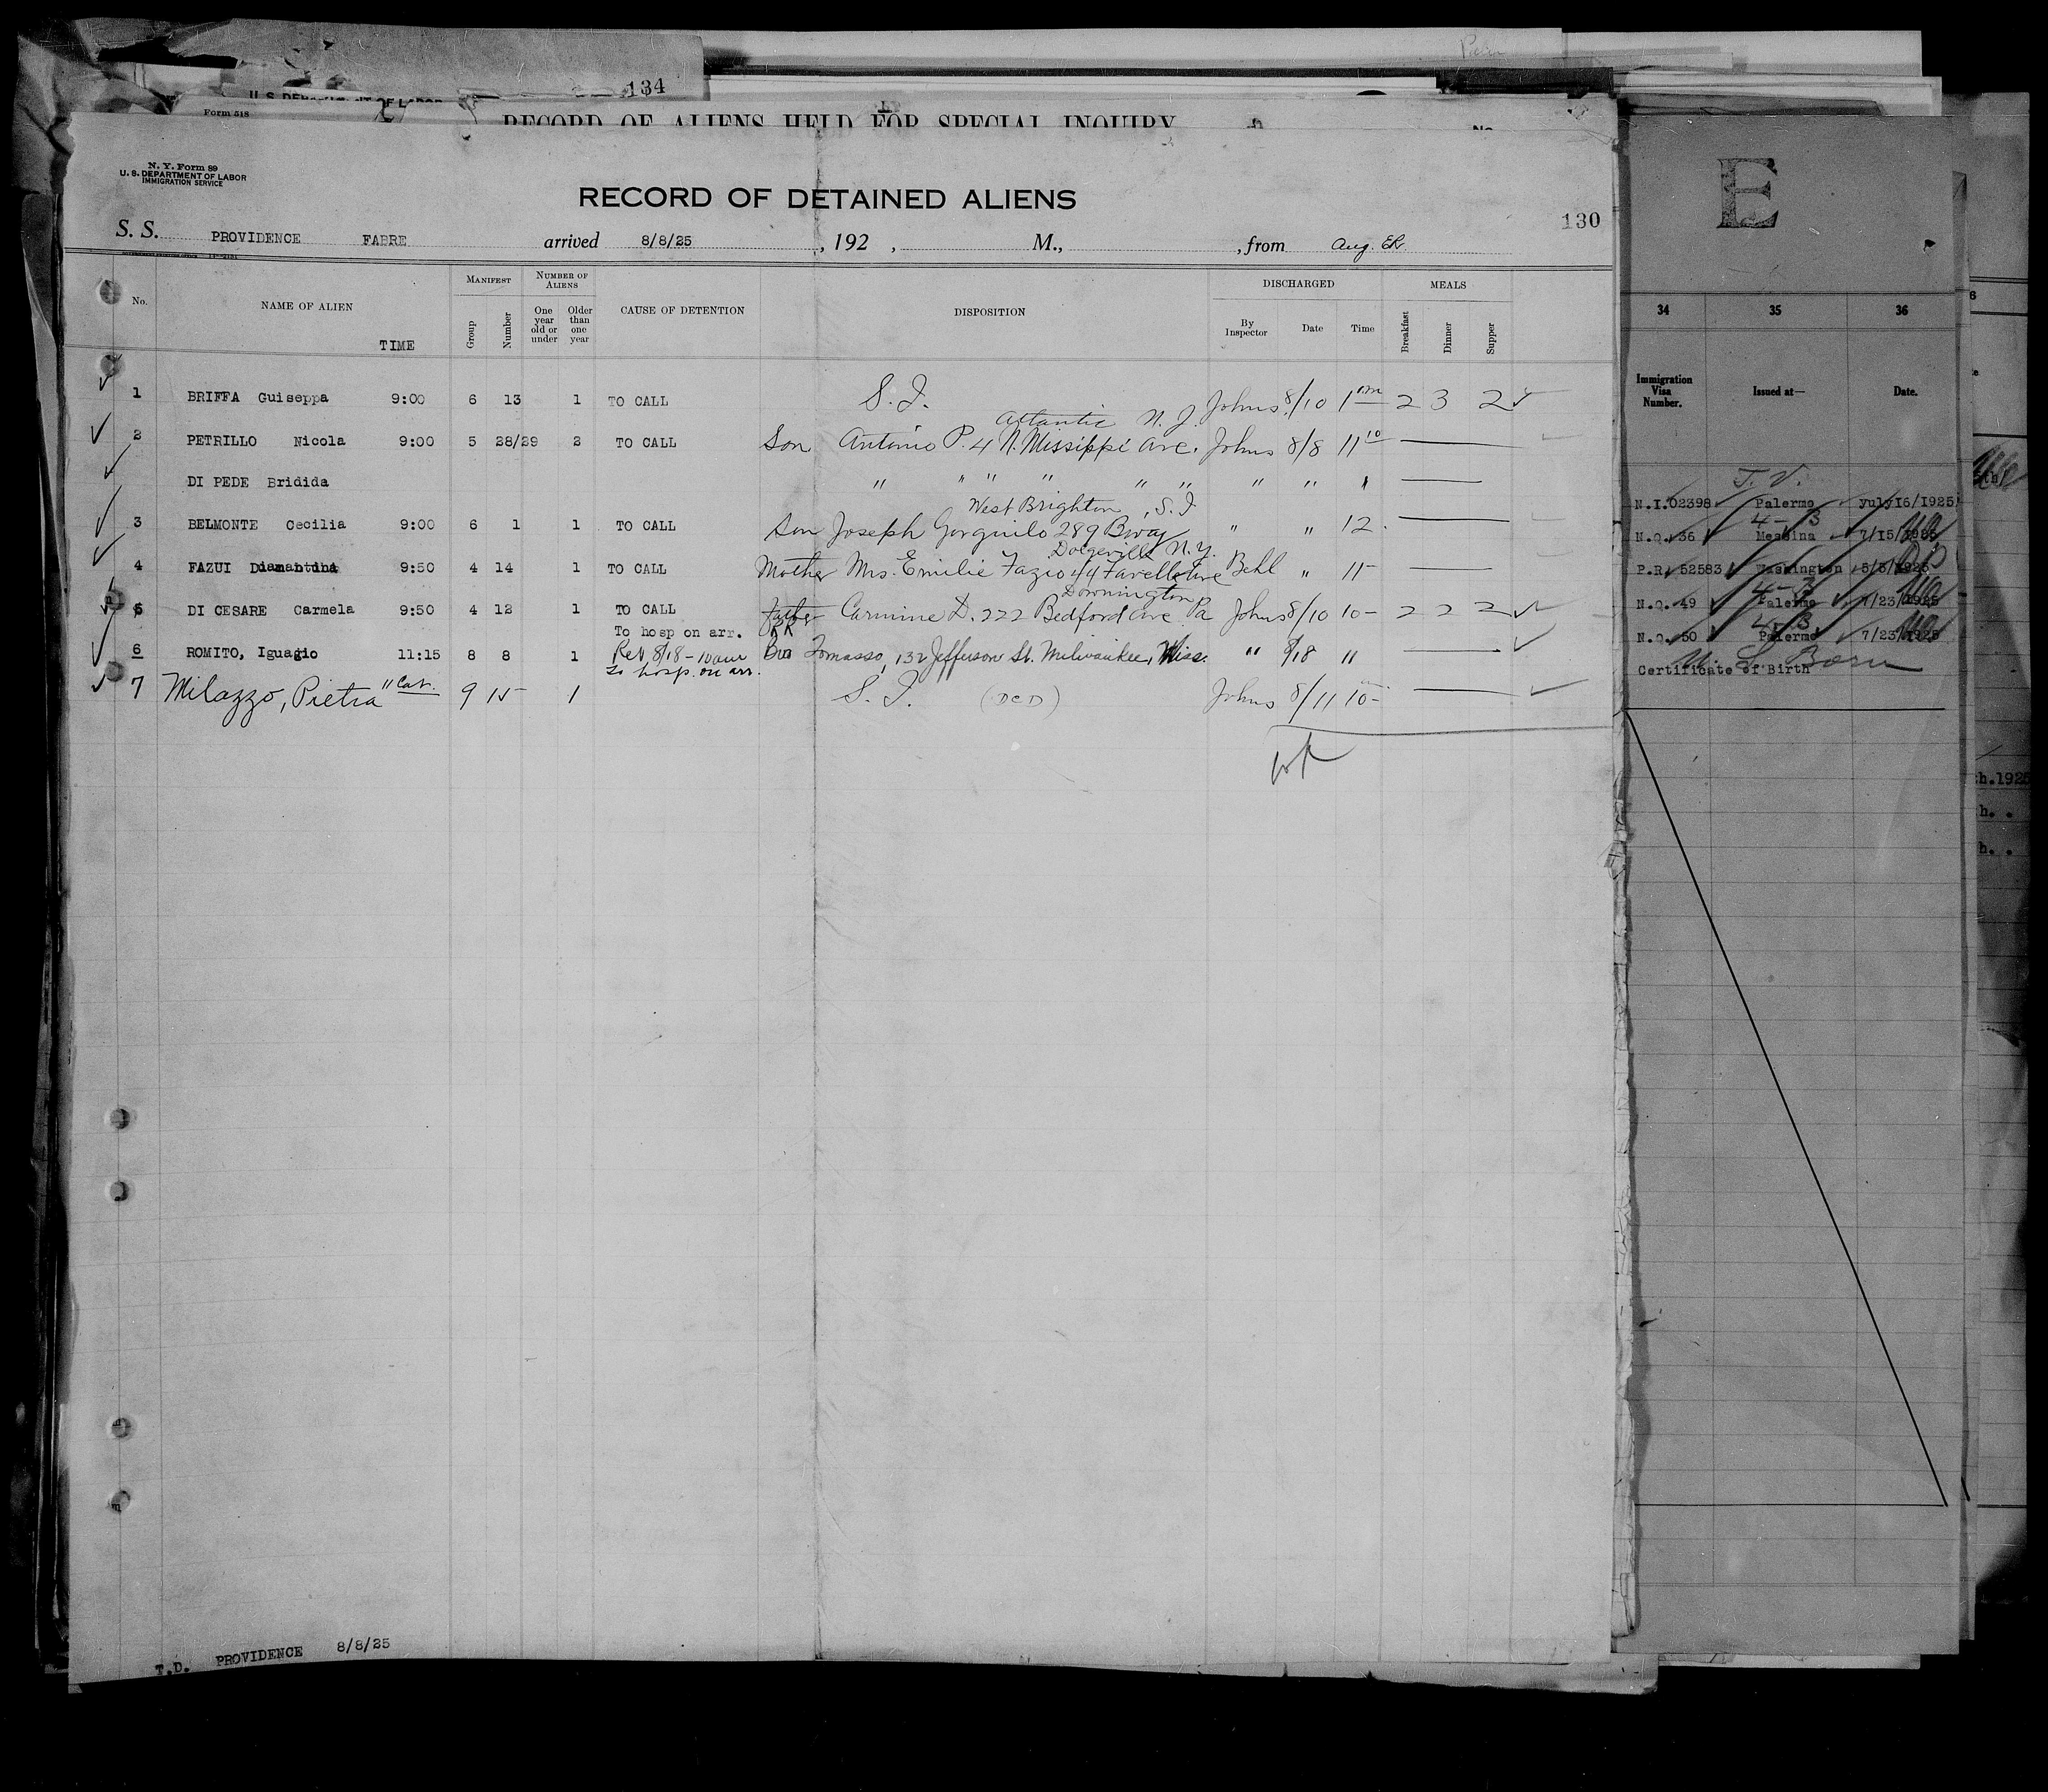 134
Form 518
RECORD OF ALIENS HELD FOR SPECIAL INQUIRY
No.
N. Y. Form 89
U. S. DEPARTMENT OF LABOR
IMMIGRATION SERVICE
RECORD OF DETAINED ALIENS
130
S. S. PROVIDENCE FABRE arrived 8/8/25, 192 , M., , from Aug. ER.
No. NAME OF ALIEN TIME MANIFEST Group Number NUMBER OF ALIENS One year old or under Older than one year CAUSE OF DETENTION DISPOSITION DISCHARGED By Inspector Date Time MEALS Breakfast Dinner Supper
1 BRIFFA Guiseppa 9:00 6 13 1 TO CALL S. I. Johns 8/10 1 2 3 2
Atlantic N. J.
2 PETRILLO Nicola 9:00 5 28/29 2 TO CALL Son Antonio P. 4 N. Missippi Ave. Johns 8/8 11 10
DI PEDE Bridida " " " " " " " " "
West Brighton, S. I.
3 BELMONTE Cecilia 9:00 6 1 1 TO CALL Son Joseph Gorguilo 289 Bway " " 12
Dolgeville N.Y.
4 FAZUI 9:50 4 14 1 TO CALL Mother Mrs. Emilie Fazio 44 Ave Behl " 11
Downington
5 DI CESARE Carmela 9:50 4 12 1 TO CALL Father Carmine D. 222 Bedford Ave Pa Johns 8/10 10 - 2 2 2
To hosp on arr. RR
6 ROMITO, 11:15 8 8 1 Rel 8/18 - 10am Bro Tomasso, 132 Jefferson St. Milwaukee, Wiss. " 8/18 11
To hosp. on arr.
7 Milazzo, Pietra 9 15 1 S. I. (DCD) Johns 8/11 10 -
T.D. PROVIDENCE 8/8/25
E
34 35 36
Immigration Visa Number. Issued at— Date.
T. V.
N.I.02398 Palermo yuly16/1925
4 - 3
N.Q. 36 Messina 7/15/1925
P.R. 52583 Washington 5/5/1925
4 - 3
N.Q. 49 Palermo 7/23/1925
4 - 3
N.Q. 50 Palermo 7/23/1925
U. S. Born
Certificate of Birth